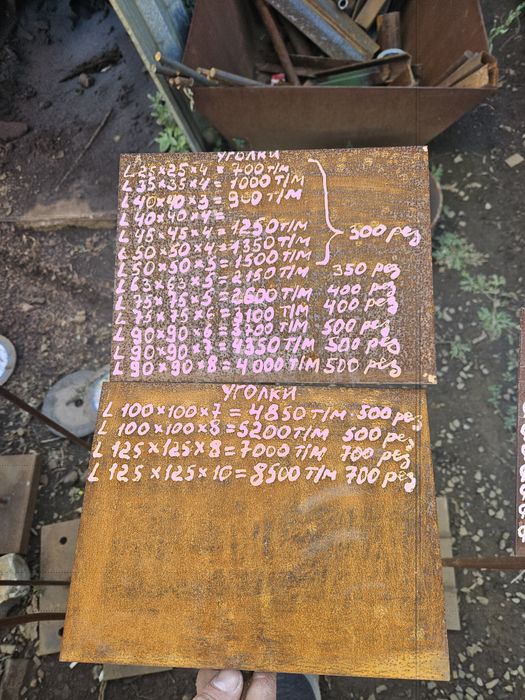 УГОЛКИ
L 25×25×4 = 700 т/м
L 35×35×4 = 1000 т/м
L 40×40×3 = 900 т/м
L 40×40×4 =
L 45×45×4 = 1250 т/м 300 рез
L 50×50×4 = 1350 т/м
L 50×50×5 = 1500 т/м
L 63×63×5 = 2150 т/м 350 рез
L 75×75×5 = 2600 т/м 400 рез
L 75×75×6 = 3100 т/м 400 рез
L 90×90×6 = 3700 т/м 500 рез
L 90×90×7 = 4350 т/м 500 рез
L 90×90×8 = 4000 т/м 500 рез
УГОЛКИ
L 100×100×7 = 4850 т/м 500 рез
L 100×100×8 = 5200 т/м 500 рез
L 125×125×8 = 7000 т/м 700 рез
L 125×125×10 = 8500 т/м 700 рез